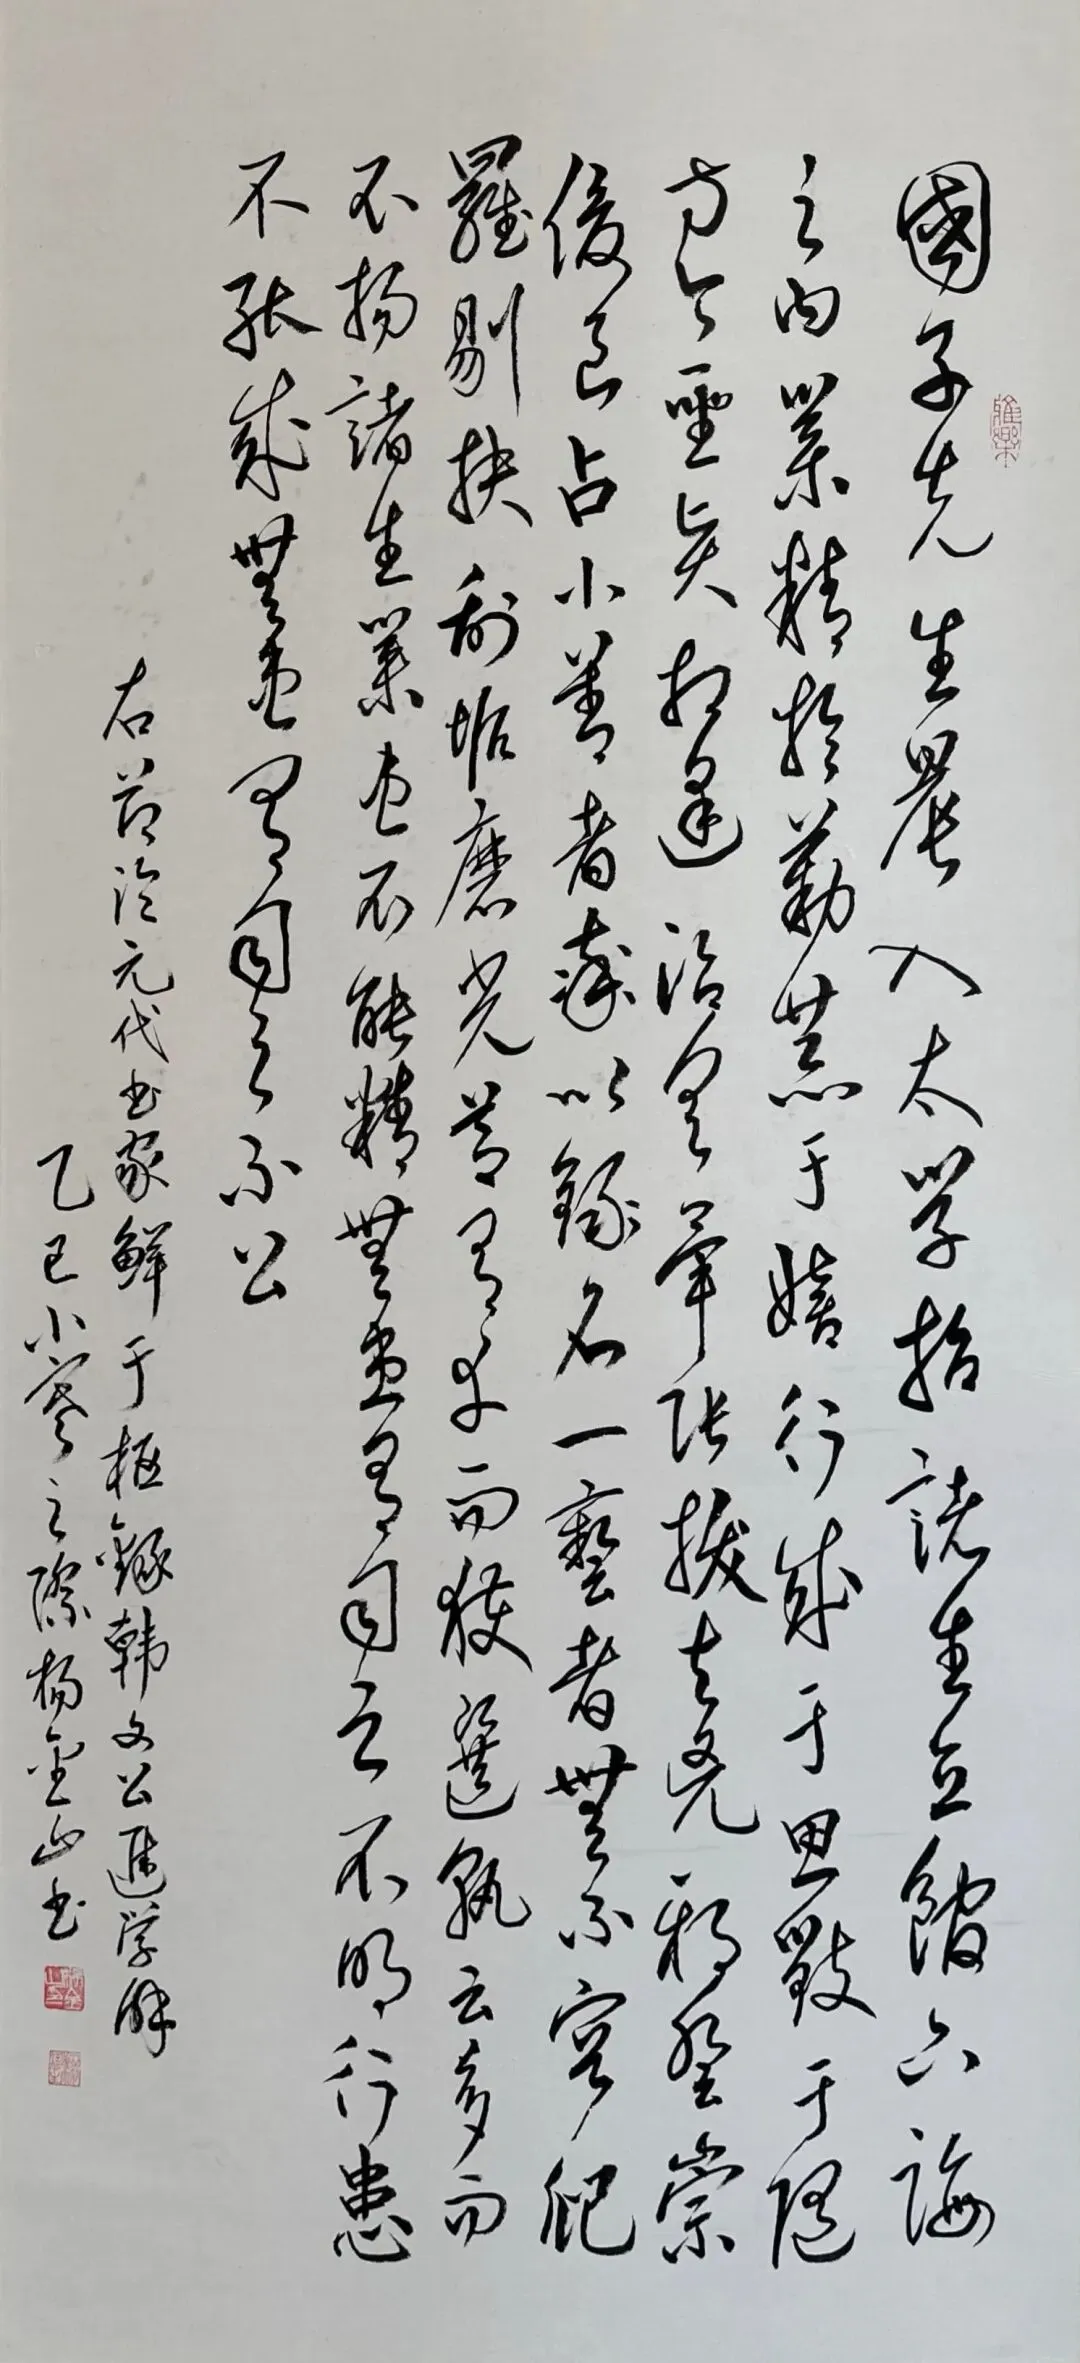 國子先生晨入太学招諸生立館下誨
之曰業精於勤荒于嬉行成于思毀于隨
方今聖賢相逢治具畢張拔去兇邪登崇
俊良占小善者率以錄名一藝者無不容爬
羅剔抉刮垢磨光蓋有幸而獲選孰云多而
不揚諸生業患不能精無患有司之不明行患
不能成無患有司之不公
右節臨元代书家鮮于枢錄韩文公進学解
乙巳小寒之際杨金山书